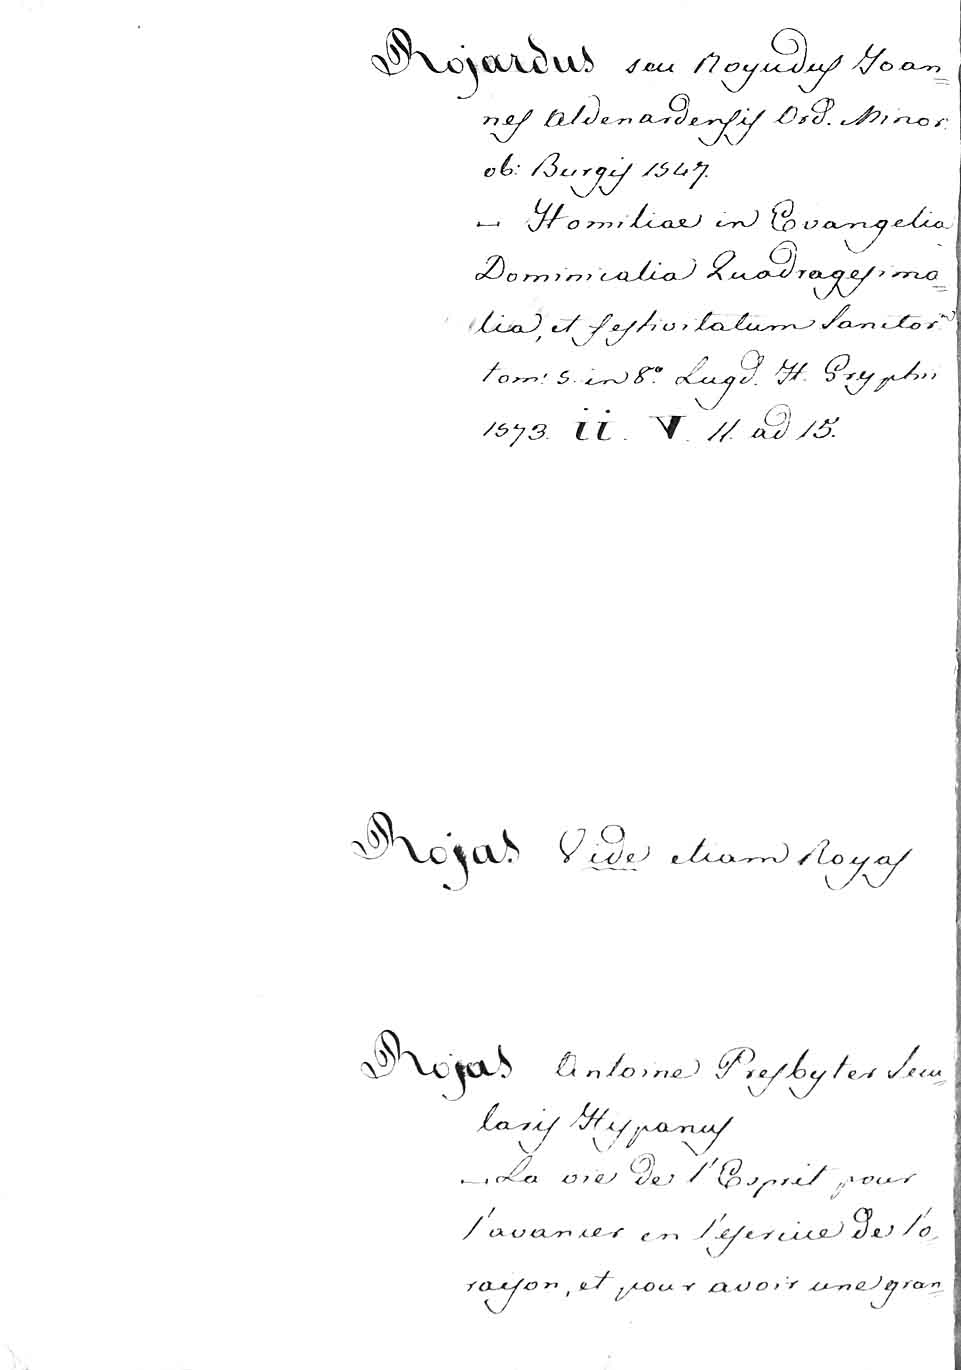 Rojardus seu Royudus Joan=
nes Aldenardensis Ord. Minor.
ob: Burgis 1547.
— Homiliae in Evangelia
Dominicalia Quadragesima=
lia, et festivitatum Sanctor.m
tom: 5. in 8.º Lugd. H. Gryphii
1573. ii. V. 11. ad 15.
Rojas Vide etiam Royas
Rojas Antoine Presbyter Secu=
laris Hyspanus
— La vie de l'Esprit pour
l'avancer en l'eserice de l'o=
raison, et pour avoir une gran=